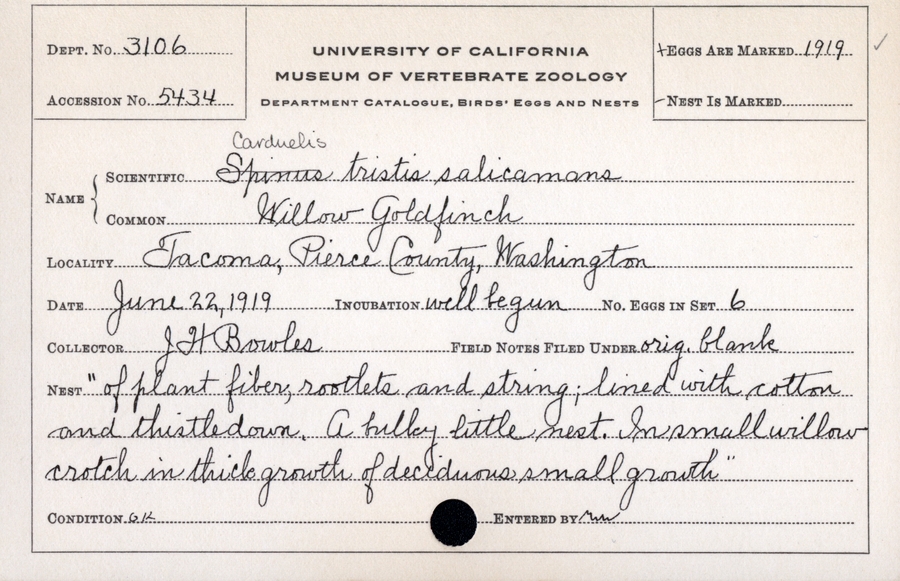 DEPT. No. 3106
ACCESSION No. 5434
UNIVERSITY OF CALIFORNIA
MUSEUM OF VERTEBRATE ZOOLOGY
DEPARTMENT CATALOGUE, BIRDS' EGGS AND NESTS
+EGGS ARE MARKED 1919 ✓
-NEST IS MARKED
Carduelis
NAME { SCIENTIFIC Spinus tristis salicamans
COMMON Willow Goldfinch
LOCALITY Tacoma, Pierce County, Washington
DATE June 22, 1919 INCUBATION well begun No. EGGS IN SET 6
COLLECTOR J H Bowles FIELD NOTES FILED UNDER orig. blank
NEST "of plant fiber, rootlets and string; lined with cotton
and thistledown. A bulky little nest. In small willow
crotch in thick growth of deciduous small growth"
CONDITION OK ENTERED BY